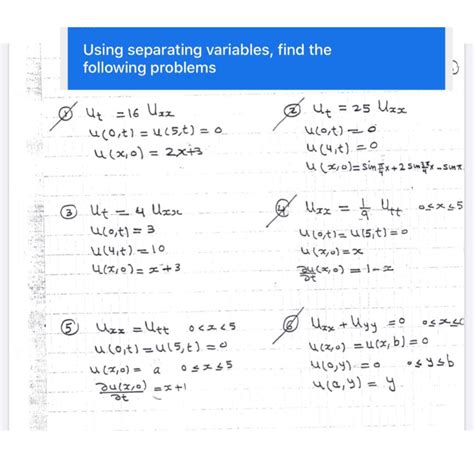 Using separating variables, find the
following problems
① u_t = 16 u_xx
u(0,t) = u(5,t) = 0
u(x,0) = 2x+3
② u_t = 25 u_xx
u(0,t) = 0
u(4,t) = 0
③ u_t = 4 u_xx
u(0,t) = 3
u(4,t) = 10
u(x,0) = x+3
④ u_xx = 1/9 u_tt 0≤x≤5
u(0,t) = u(5,t) = 0
u(x,0) = x
∂u(x,0)/∂t = 1-x
⑤ u_xx = u_tt 0<x<5
u(0,t) = u(5,t) = 0
u(x,0) = a 0≤x≤5
∂u(x,0)/∂t = x+1
⑥ u_xx + u_yy = 0
u(x,0) = u(x,b) = 0
u(0,y) = 0 0≤y≤b
u(a,y) = y